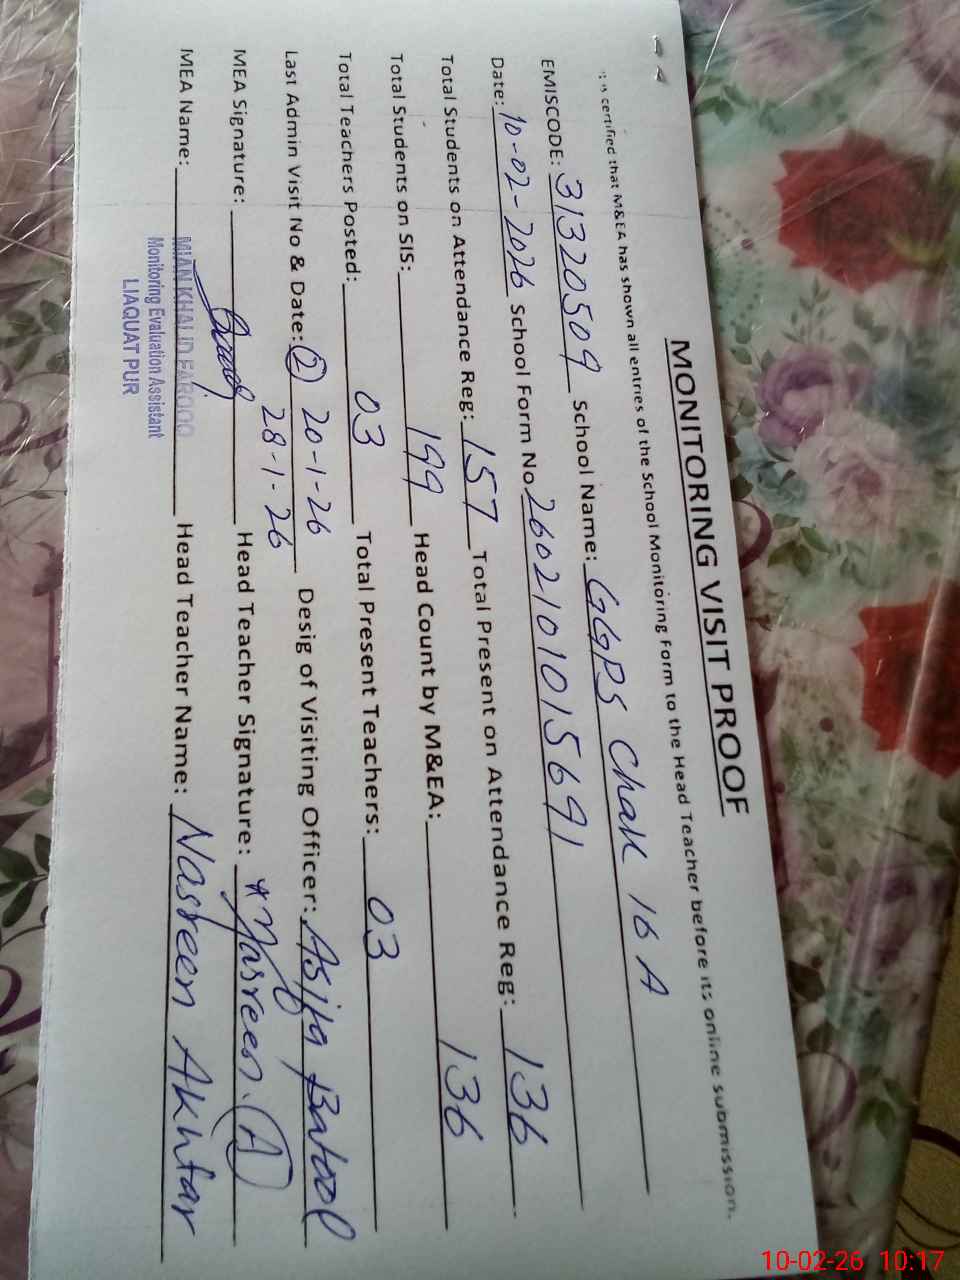 MONITORING VISIT PROOF
certified that M&EA has shown all entries of the School Monitoring Form to the Head Teacher before its online submission.
EMISCODE: 31320509 School Name: GGPS Chak 16 A
Date: 10-02-2026 School Form No 260210101015691
Total Students on Attendance Reg: 157 Total Present on Attendance Reg: 136
Total Students on SIS: 199 Head Count by M&EA: 136
Total Teachers Posted: 03 Total Present Teachers: 03
Last Admin Visit No & Date: (2) 20-1-26 Desig of Visiting Officer: Asifa Batool
28-1-26
MEA Signature: Head Teacher Signature: Nasreen. (A)
MEA Name: MIAN KHALID FAROOQ Head Teacher Name: Nasreen Akhtar
Monitoring Evaluation Assistant
LIAQUAT PUR
10-02-26 10:17